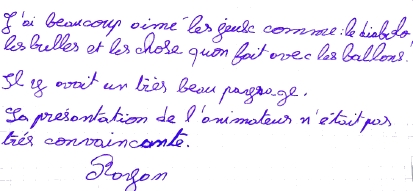 J'ai beaucoup aimé les jeusc comme : le diabolo
les bulles et les chose quon fait avec les ballons.
Il y avait un très beau paysage.
La présentation de l'animateur n'était pas
très convaincante.